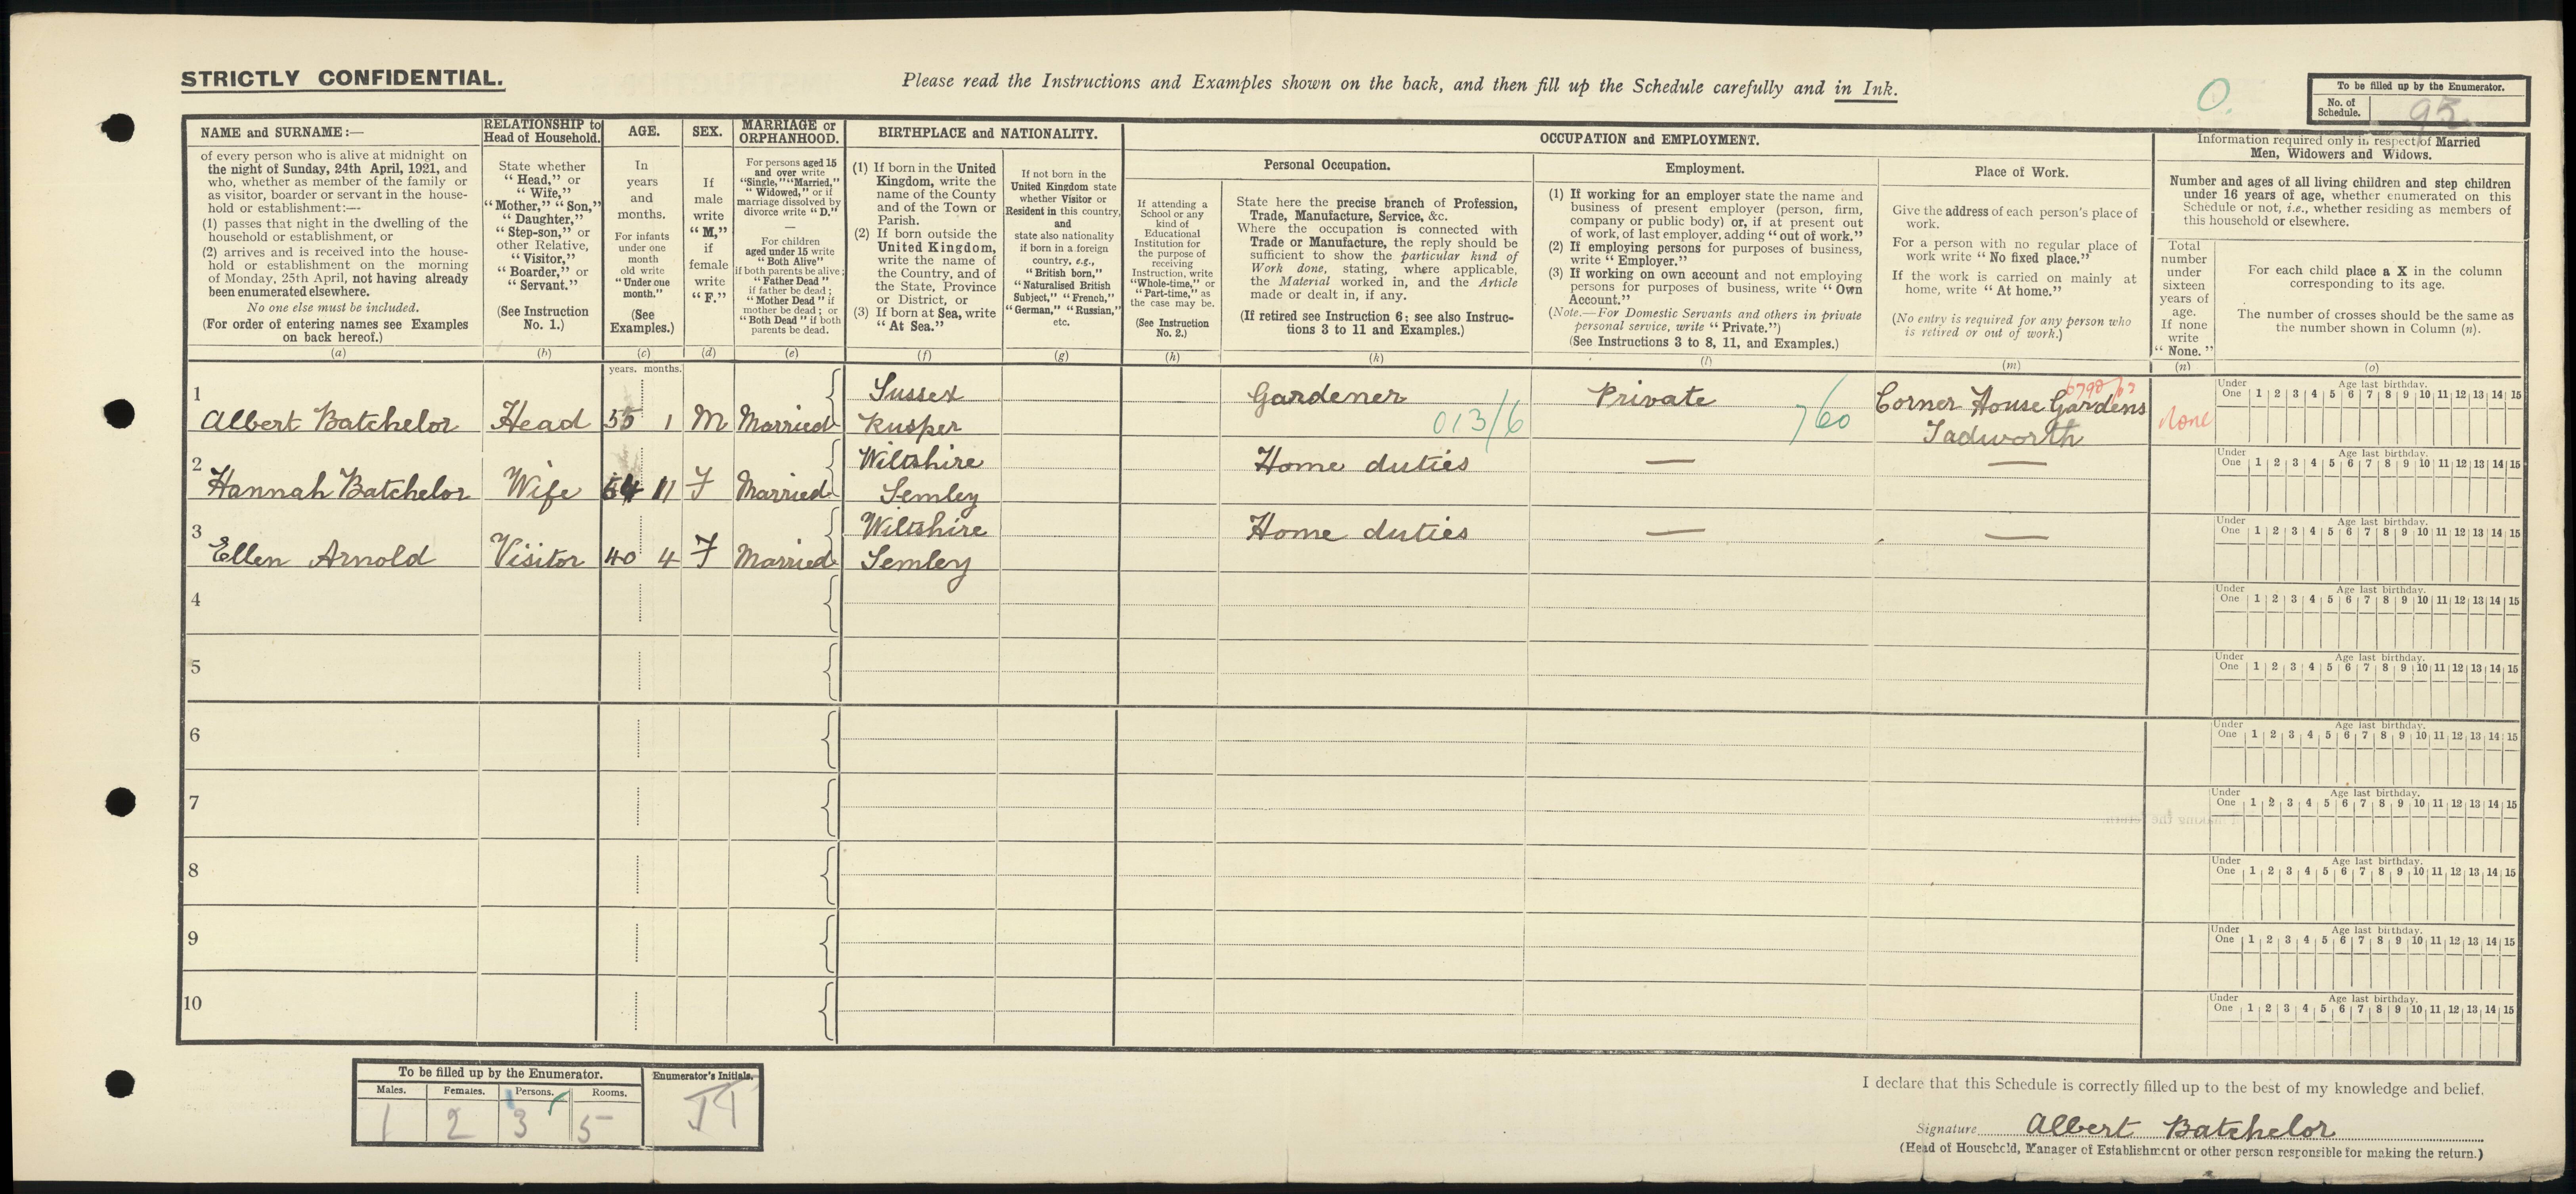 STRICTLY CONFIDENTIAL.
Please read the Instructions and Examples shown on the back, and then fill up the Schedule carefully and in Ink.
O.
To be filled up by the Enumerator.
No. of Schedule. 93.
NAME and SURNAME:—
of every person who is alive at midnight on
the night of Sunday, 24th April, 1921, and
who, whether as member of the family or
as visitor, boarder or servant in the house-
hold or establishment:—
(1) passes that night in the dwelling of the
household or establishment, or
(2) arrives and is received into the house-
hold or establishment on the morning
of Monday, 25th April, not having already
been enumerated elsewhere.
No one else must be included.
(For order of entering names see Examples
on back hereof.)
(a)
RELATIONSHIP to
Head of Household.
State whether
"Head," or
"Wife,"
"Mother," "Son,"
"Daughter,"
"Step-son," or
other Relative,
"Visitor,"
"Boarder," or
"Servant."
(See Instruction
No. 1.)
(b)
AGE.
In
years
and
months.
For infants
under one
month
old write
"Under one
month."
(See
Examples.)
(c)
SEX.
If
male
write
"M,"
if
female
write
"F."
(d)
MARRIAGE or
ORPHANHOOD.
For persons aged 15
and over write
"Single," "Married,"
"Widowed," or if
marriage dissolved by
divorce write "D."
—
For children
aged under 15 write
"Both Alive"
if both parents be alive;
"Father Dead"
if father be dead;
"Mother Dead" if
mother be dead; or
"Both Dead" if both
parents be dead.
(e)
BIRTHPLACE and NATIONALITY.
(1) If born in the United
Kingdom, write the
name of the County
and of the Town or
Parish.
(2) If born outside the
United Kingdom,
write the name of
the Country, and of
the State, Province
or District, or
(3) If born at Sea, write
"At Sea."
(f)
If not born in the
United Kingdom state
whether Visitor or
Resident in this country,
and
state also nationality
if born in a foreign
country, e.g.,
"British born,"
"Naturalised British
Subject," "French,"
"German," "Russian,"
etc.
(g)
OCCUPATION and EMPLOYMENT.
If attending a
School or any
kind of
Educational
Institution for
the purpose of
receiving
Instruction, write
"Whole-time," or
"Part-time," as
the case may be.
(See Instruction
No. 2.)
(h)
Personal Occupation.
State here the precise branch of Profession,
Trade, Manufacture, Service, &c.
Where the occupation is connected with
Trade or Manufacture, the reply should be
sufficient to show the particular kind of
Work done, stating, where applicable,
the Material worked in, and the Article
made or dealt in, if any.
(If retired see Instruction 6: see also Instruc-
tions 3 to 11 and Examples.)
(k)
Employment.
(1) If working for an employer state the name and
business of present employer (person, firm,
company or public body) or, if at present out
of work, of last employer, adding "out of work."
(2) If employing persons for purposes of business,
write "Employer."
(3) If working on own account and not employing
persons for purposes of business, write "Own
Account."
(Note.—For Domestic Servants and others in private
personal service, write "Private.")
(See Instructions 3 to 8, 11, and Examples.)
(l)
Place of Work.
Give the address of each person's place of
work.
For a person with no regular place of
work write "No fixed place."
If the work is carried on mainly at
home, write "At home."
(No entry is required for any person who
is retired or out of work.)
(m)
Information required only in respect of Married
Men, Widowers and Widows.
Number and ages of all living children and step children
under 16 years of age, whether enumerated on this
Schedule or not, i.e., whether residing as members of
this household or elsewhere.
Total
number
under
sixteen
years of
age.
If none
write
"None."
(n)
For each child place a X in the column
corresponding to its age.
The number of crosses should be the same as
the number shown in Column (n).
(o)
years. months.
1
Albert Batchelor Head 55 1 M Married Sussex
Rusper
Gardener 013/6 Private 760 Corner House Gardens
Tadworth
None
Under One Age last birthday. 1 2 3 4 5 6 7 8 9 10 11 12 13 14 15
2
Hannah Batchelor Wife 54 11 F Married Wiltshire
Semley
Home duties — —
Under One Age last birthday. 1 2 3 4 5 6 7 8 9 10 11 12 13 14 15
3
Ellen Arnold Visitor 40 4 F Married Wiltshire
Semley
Home duties — —
Under One Age last birthday. 1 2 3 4 5 6 7 8 9 10 11 12 13 14 15
4
Under One Age last birthday. 1 2 3 4 5 6 7 8 9 10 11 12 13 14 15
5
Under One Age last birthday. 1 2 3 4 5 6 7 8 9 10 11 12 13 14 15
6
Under One Age last birthday. 1 2 3 4 5 6 7 8 9 10 11 12 13 14 15
7
Under One Age last birthday. 1 2 3 4 5 6 7 8 9 10 11 12 13 14 15
8
Under One Age last birthday. 1 2 3 4 5 6 7 8 9 10 11 12 13 14 15
9
Under One Age last birthday. 1 2 3 4 5 6 7 8 9 10 11 12 13 14 15
10
Under One Age last birthday. 1 2 3 4 5 6 7 8 9 10 11 12 13 14 15
To be filled up by the Enumerator.
Males. Females. Persons. Rooms.
1 2 3 5
Enumerator's Initials.
I declare that this Schedule is correctly filled up to the best of my knowledge and belief.
Signature Albert Batchelor
(Head of Household, Manager of Establishment or other person responsible for making the return.)